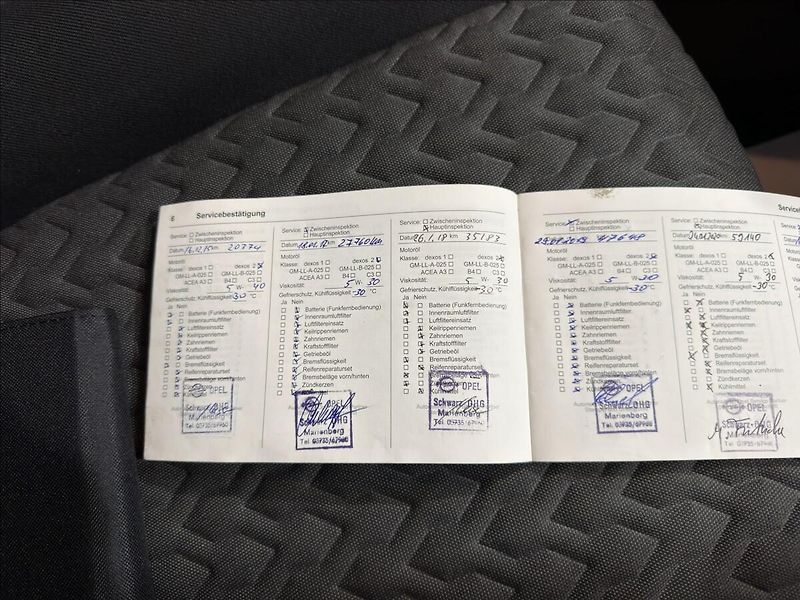 6 Servicebestätigung
Service: Zwischeninspektion
Hauptinspektion
Datum 16.12.15 km 20374
Motoröl
Klasse: dexos 1 dexos 2
GM-LL-A-025 GM-LL-B-025
ACEA A3 B4 C3
Viskosität: 5 W- 40
Gefrierschutz, Kühlflüssigkeit -30 °C
Ja Nein
Batterie (Funkfernbedienung)
Innenraumluftfilter
Luftfiltereinsatz
Keilrippenriemen
Zahnriemen
Kraftstofffilter
Getriebeöl
Bremsflüssigkeit
Reifenreparaturset
Bremsbeläge vorn/hinten
Zündkerzen
OPEL
Marienberg
Tel. 03735/67960
Service: Zwischeninspektion
Hauptinspektion
Datum km 27760 km
Motoröl
Klasse: dexos 1 dexos 2
GM-LL-A-025 GM-LL-B-025
ACEA A3 B4 C3
Viskosität: 5 W- 30
Gefrierschutz, Kühlflüssigkeit -30 °C
Ja Nein
Batterie (Funkfernbedienung)
Innenraumluftfilter
Luftfiltereinsatz
Keilrippenriemen
Zahnriemen
Kraftstofffilter
Getriebeöl
Bremsflüssigkeit
Reifenreparaturset
Bremsbeläge vorn/hinten
Zündkerzen
OPEL
Marienberg
Tel. 03735/67960
Service: Zwischeninspektion
Hauptinspektion
Datum 26.1.18 km 35183
Motoröl
Klasse: dexos 1 dexos 2
GM-LL-A-025 GM-LL-B-025
ACEA A3 B4 C3
Viskosität: 5 W- 30
Gefrierschutz, Kühlflüssigkeit -30 °C
Ja Nein
Batterie (Funkfernbedienung)
Innenraumluftfilter
Luftfiltereinsatz
Keilrippenriemen
Zahnriemen
Kraftstofffilter
Getriebeöl
Bremsflüssigkeit
Reifenreparaturset
Bremsbeläge vorn/hinten
OPEL
Schwarz OHG
Marienberg
Tel. 03735/67960
Service: Zwischeninspektion
Hauptinspektion
47648
Motoröl
Klasse: dexos 1 dexos 2
GM-LL-A-025 GM-LL-B-025
ACEA A3 B4 C3
Viskosität: 5 W- 30
Gefrierschutz, Kühlflüssigkeit -30 °C
Ja Nein
Batterie (Funkfernbedienung)
Innenraumluftfilter
Luftfiltereinsatz
Keilrippenriemen
Zahnriemen
Kraftstofffilter
Getriebeöl
Bremsflüssigkeit
Reifenreparaturset
Bremsbeläge vorn/hinten
Zündkerzen
OPEL
Schwarz OHG
Marienberg
Tel. 03735/67960
Service: Zwischeninspektion
Hauptinspektion
Datum km 59140
Motoröl
Klasse: dexos 1 dexos 2
GM-LL-A-025 GM-LL-B-025
ACEA A3 B4 C3
Viskosität: 5 W- 30
Gefrierschutz, Kühlflüssigkeit -30 °C
Ja Nein
Batterie (Funkfernbedienung)
Innenraumluftfilter
Luftfiltereinsatz
Keilrippenriemen
Zahnriemen
Kraftstofffilter
Getriebeöl
Bremsflüssigkeit
Reifenreparaturset
Bremsbeläge vorn/hinten
Zündkerzen
OPEL
Tel. 03735/67960